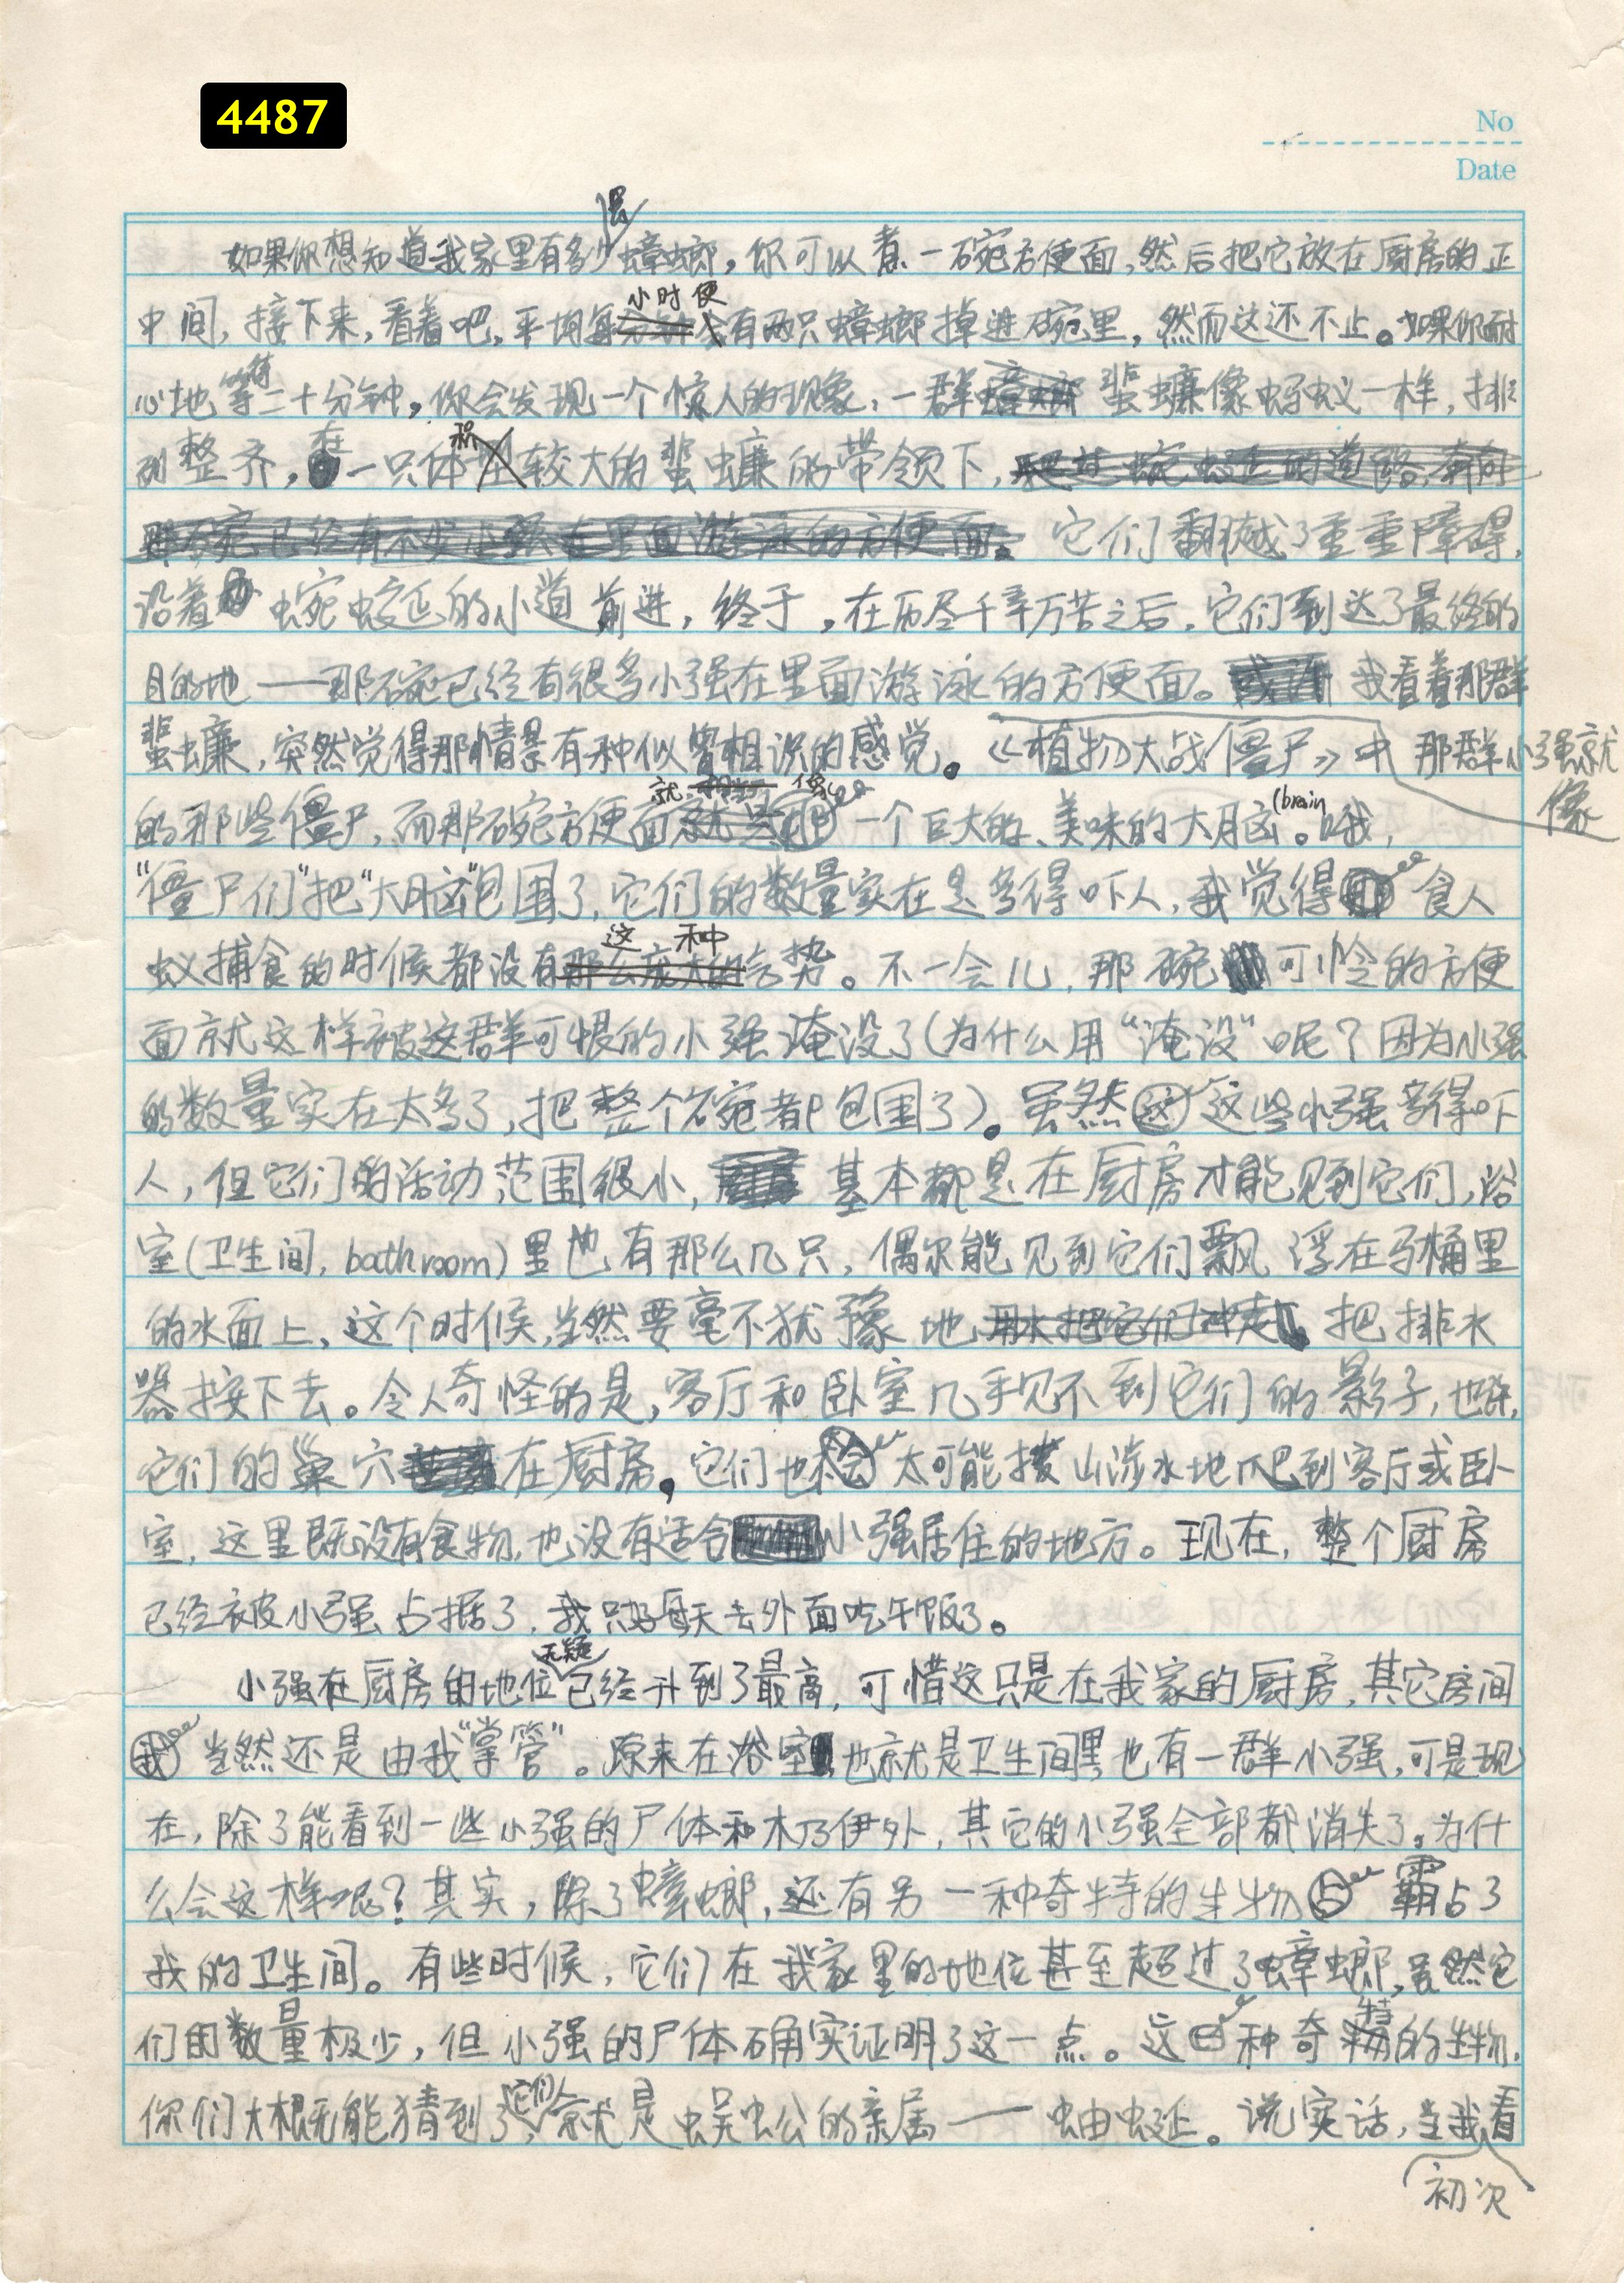 4487
No
Date
如果你想知道我家里有多少只蟑螂，你可以煮一碗方便面，然后把它放在厨房的正
中间，接下来，看着吧，平均每小时便有两只蟑螂掉进碗里，然而这还不止。如果你耐
心地等待二十分钟，你会发现一个惊人的现象，一群蜚蠊像蚂蚁一样，排
列整齐，在一只体积较大的蜚蠊的带领下，
它们翻越了重重障碍，
沿着蜿蜒的小道前进，终于，在历尽千辛万苦之后，它们到达了最终的
目的地——那碗已经有很多小强在里面游泳的方便面。我看着那群
蜚蠊，突然觉得那情景有种似曾相识的感觉。那群小强就像《植物大战僵尸》中
的那些僵尸，而那碗方便面就像一个巨大的、美味的大脑(brain)。哦，
“僵尸们”把“大脑”包围了，它们的数量实在是多得吓人，我觉得食人
蚁捕食的时候都没有这种气势。不一会儿，那碗可怜的方便
面就这样被这群可恨的小强淹没了(为什么用“淹没”呢？因为小强
的数量实在太多了，把整个碗都包围了)。虽然这些小强多得吓
人，但它们的活动范围很小，基本都是在厨房才能见到它们，浴
室(卫生间，bathroom)里也有那么几只，偶尔能见到它们飘浮在马桶里
的水面上，这个时候，当然要毫不犹豫地把排水
器按下去。令人奇怪的是，客厅和卧室几乎见不到它们的影子，也许，
它们的巢穴在厨房，它们也不太可能拔山涉水地爬到客厅或卧
室，这里既没有食物，也没有适合小强居住的地方。现在，整个厨房
已经被小强占据了，我只好每天去外面吃午饭了。
小强在厨房的地位无疑已经升到了最高，可惜这只是在我家的厨房，其它房间
当然还是由我“掌管”。原来在浴室也就是卫生间里也有一群小强，可是现
在，除了能看到一些小强的尸体和木乃伊外，其它的小强全部都消失了。为什
么会这样呢？其实，除了蟑螂，还有另一种奇特的生物霸占了
我的卫生间。有些时候，它们在我家里的地位甚至超过了蟑螂，虽然它
们的数量极少，但小强的尸体确实证明了这一点。这种奇特的生物，
你们大概无能猜到了，它们就是蜈蚣的亲属——蚰蜒。说实话，当我初次看